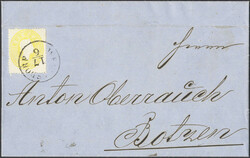 Herrn
Anton Oberrauch
Botzen